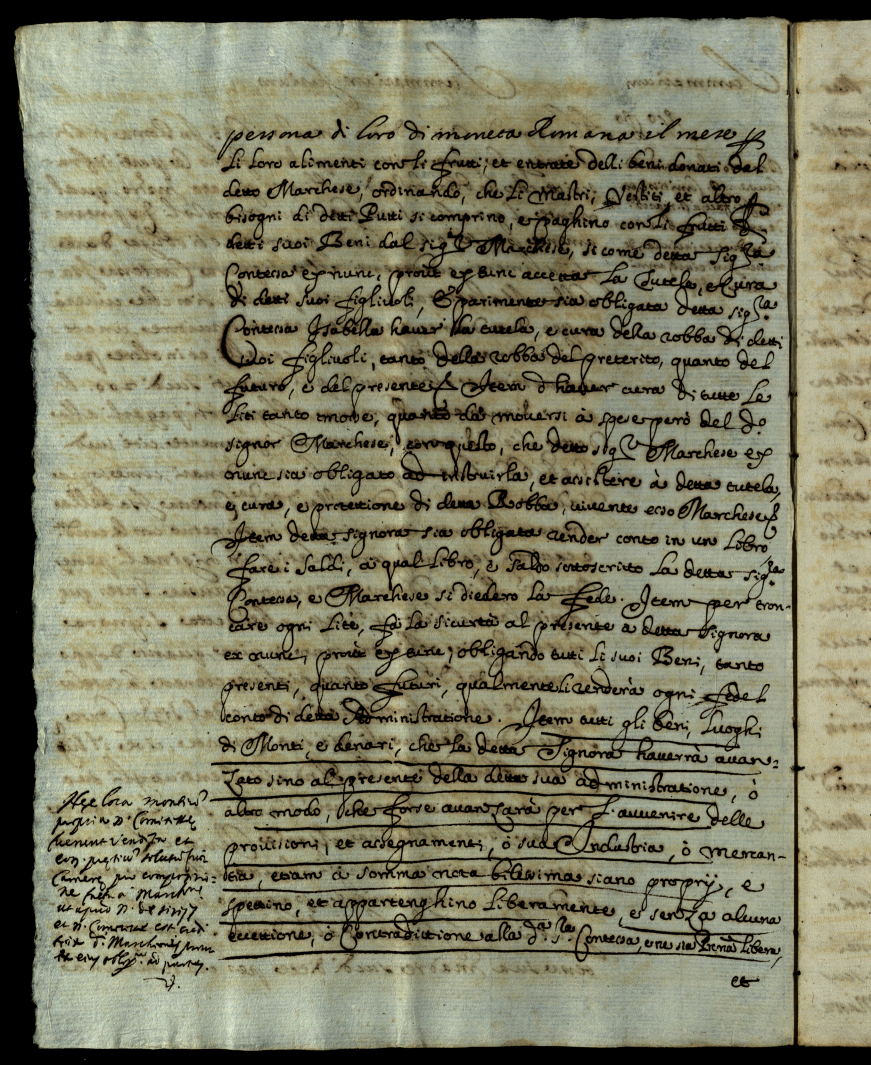 persona di loro di moneta Romana il mese p
li loro alimenti con li frutti, et entrate delli beni donati dal
detto Marchese, ordinando, che li mastri, Vestiti, et altro
bisogni di detti Putti si comprino, e paghino con li frutti di
detti suoi Beni dal sig.r Marchese, si come detta Sig.ra
Contessa ex nunc, prout ex tunc accetta la Tutela, e Cura
di detti suoi figlivoli, E parimente sia obligata detta sig.ra
Contessa Isabella haver la tutela, e cura della robba di detti
suoi figlivoli, tanto della robba del preterito, quanto del
futuro, e del presente Item d'haver cura di tutte le
liti tanto mosse, quanto da moversi à spese però del d.o
signor Marchese, con questo, che detto sig.r Marchese ex
nunc sia obligato ad instruirla, et assistere à detta tutela,
e, cura, e protettione di detta Robba, vivente esso Marchese
Item detta signora sia obligata render conto in un libro
fare i saldi, à qual libro, e saldo sottoscritto la detta sig.ra
Contessa, e Marchese si diedero la fede. Item per tron-
care ogni lite, fà la sicurtà al presente a detta signora
ex nunc, prout ex tunc, obligando tutti li suoi Beni, tanto
presenti, quanto futuri, qualmente li renderà ogni fedel
conto di detta Administratione. Item tutti gli beni, luoghi
di Monti, e denari, che la detta Signora haverrà avan-
zato sino al presente della detta sua administratione, ò
altro modo, che forse avanzarà per l'avvenire delle
provisioni, et assegnamenti, ò sua Industria, ò mercan-
tia, etiam à somma nota bilissima siano proprij, e
spettino, et appartenghino liberamente, e senza alcuna
eccettione, ò Contradittione alla d.a s.ra Contessa, e ne sia Prnã libera,
et
loca montium